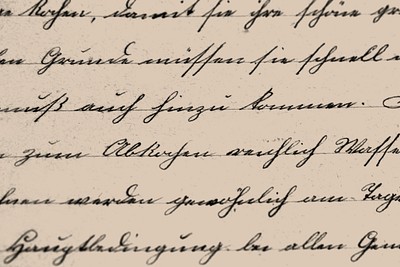 Kochen, damit sie ihre schöne
Grunde müssen sie schnell
muß auch hinzu kommen.
zum Abkochen reichlich Wasse
werden gewöhnlich am Tage
Hauptbedingung bei allen Gem